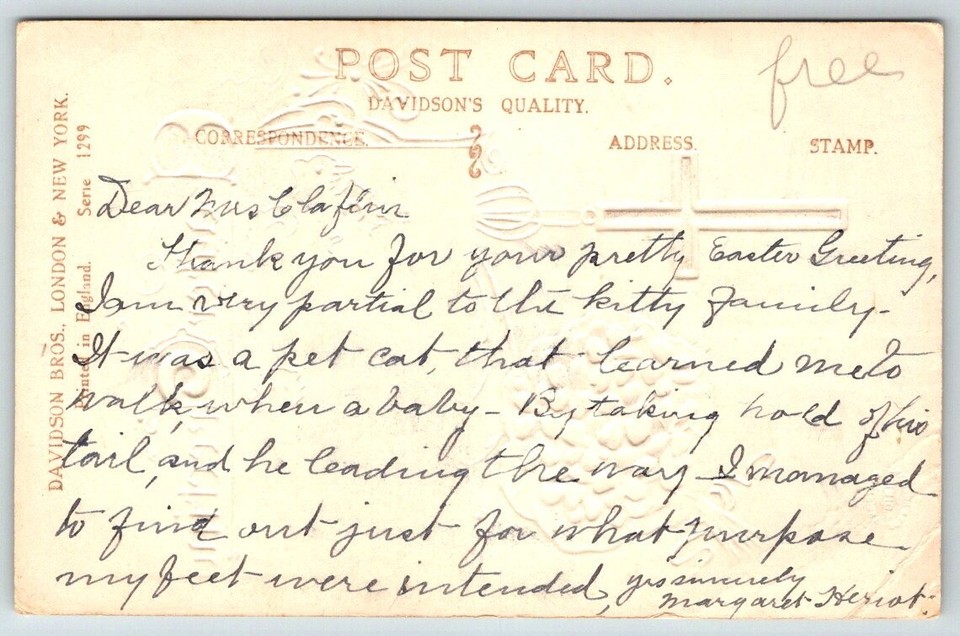 POST CARD.
free
DAVIDSON'S QUALITY.
CORRESPONDENCE.
ADDRESS.
STAMP.
DAVIDSON BROS., LONDON & NEW YORK.
Serie 1299
Printed in England.
Dear Mrs Claflin
Thank you for your pretty Easter Greeting,
I am very partial to the kitty family-
It was a pet cat, that learned me to
walk, when a baby - By taking hold of his
tail, and he leading the way - I managed
to find out just for what purpose
my feet were intended, yrs sincerely
Margaret Heriot.